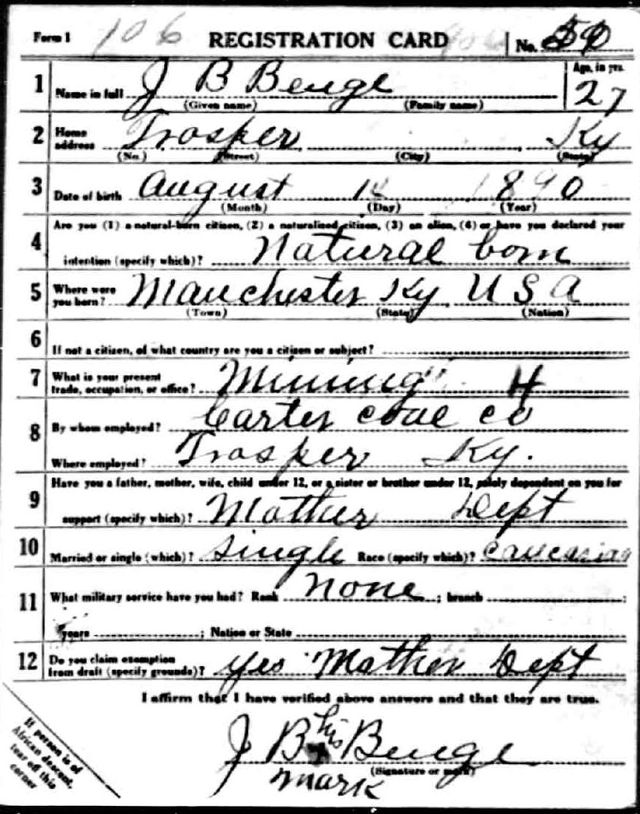 Form 1 106 REGISTRATION CARD No.
Age, in yrs.
1 Name in full J B Benge 27
(Given name) (Family name)
2 Home address Trosper Ky
(No.) (Street) (City) (State)
3 Date of birth August 1890
(Month) (Day) (Year)
Are you (1) a natural-born citizen, (2) a naturalized citizen, (3) an alien, (4) or have you declared your
4 intention (specify which)? Natural born
5 Where were you born? Manchester Ky U S A
(Town) (State) (Nation)
6 If not a citizen, of what country are you a citizen or subject?
7 What is your present trade, occupation, or office? Mining H
8 By whom employed? Carter coal co
Where employed? Trosper Ky.
Have you a father, mother, wife, child under 12, or a sister or brother under 12, solely dependent on you for
9 support (specify which)? Mother Dept
10 Married or single (which)? Single Race (specify which)? Caucasian
11 What military service have you had? Rank None ; branch ;
years ; Nation or State
12 Do you claim exemption from draft (specify grounds)? yes Mother Dept
I affirm that I have verified above answers and that they are true.
If person is of
African descent,
tear off this
corner
J B his Benge
mark
(Signature or mark)